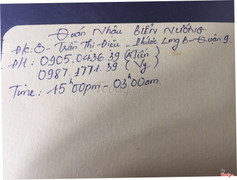 Quán Nhậu BIỂN NƯỚNG
Đ/c: 8 - Trần Thị Điệu - Phước Long B - Quận 9.
ĐH: 0905.0436.39 (Xuân)
0987.1771.39 (Vy)
Time: 15h00pm - 03h00am.